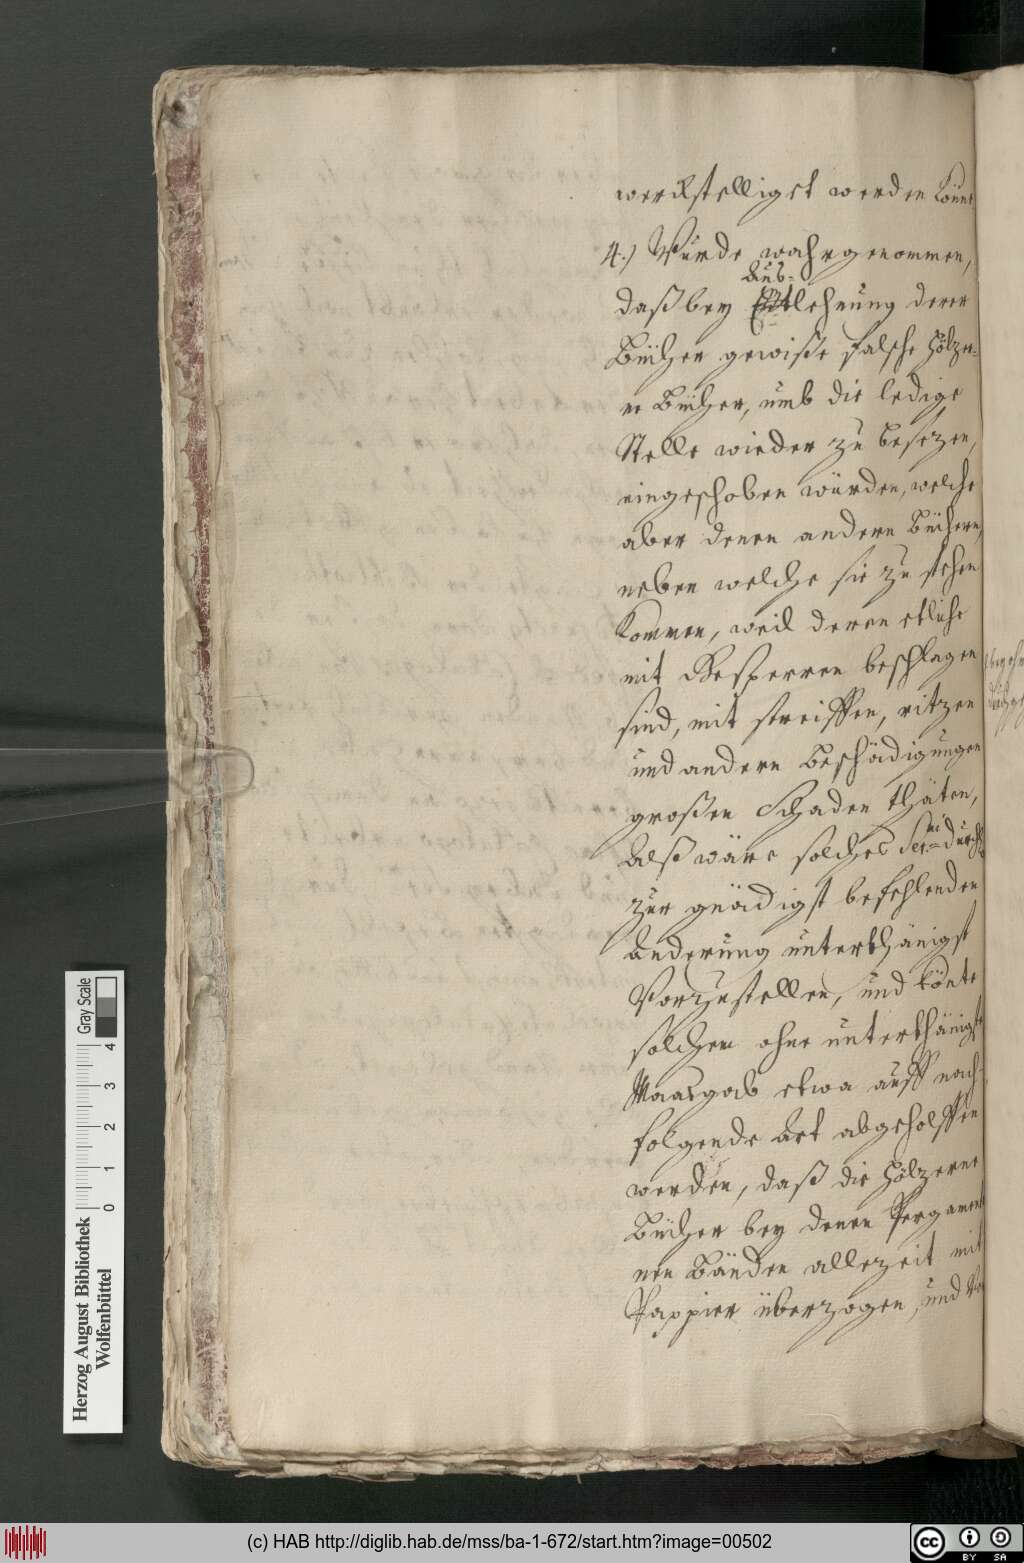 werckstelliget werden könne
4.) Wurde wahrgenommen,
Aus-
daß bey Entlehnung derer
Bücher gewiße falsche hölzer-
ne Bücher, umb die ledige
Stelle wieder zu besezen,
eingeschoben würden, welche
aber denen andern Büchern,
neben welche sie zu stehen
kommen, weil deren etliche
mit Gesperren beschlagen
sind, mit streiffen, ritzen
und andern beschädigungen
großen Schaden thäten,
Alß wäre solches Ser.mi durchl.
zur gnädigst befehlenden
Anderung unterthänigst
Vorzustellen, und könte
solchem ohne unterthänigste
Maasgab etwa auff nach-
folgende Art abgeholffen
werden, daß die hölzerne
Bücher bey denen Pergament
nen Bänden allezeit mit
Pappier überzogen, und
Herzog August Bibliothek
Wolfenbüttel
0 1 2 3 4
Gray Scale
(c) HAB http://diglib.hab.de/mss/ba-1-672/start.htm?image=00502
cc BY SA